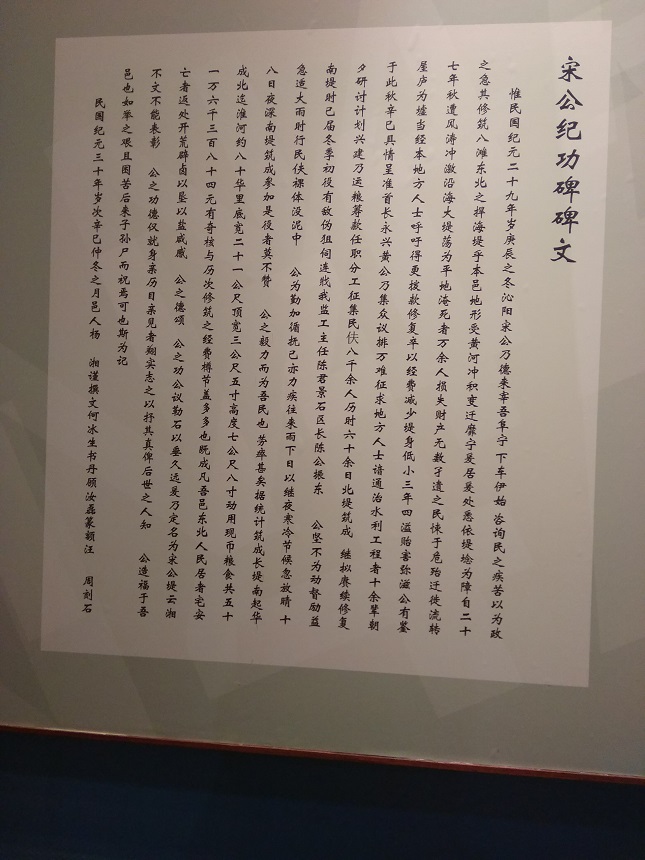 宋公纪功碑碑文
惟民国纪元二十九年岁庚辰之冬沁阳宋公乃德来宰吾阜宁 下车伊始 咨询民之疾苦以为政
之急其修筑八滩东北之捍海堤乎本邑地形受黄河冲积变迁靡宁爰居爰处悉依堤埝为障自二十
七年秋遭风涛冲激沿海大堤荡为平地淹死者万余人损失财产无数孑遗之民怵于危殆迁徙流转
屋庐为墟当经本地方人士呼吁得更拨款修复卒以经费减少堤身低小三年四溢贻害弥滋公有鉴
于此秋辛巳具情呈准首长永兴黄公乃集众议排万难征求地方人士谙通治水利工程者十余辈朝
夕研讨计划兴建乃运粮筹款任职分工征集民伕八千余人历时六十余日北堤筑成 继拟赓续修复
南堤时已届冬季初役有敌伪狙伺连戕我监工主任陈君景石区长陈公振东 公坚不为动督励益
急适大雨时行民伕裸体没泥中 公为勤加循抚己亦力疾往来雨下日以继夜寒冷节候忽放晴 十
八日夜深南堤筑成参加是役者莫不赞 公之毅力而为吾民也 劳瘁甚矣据统计筑成长堤南起华
成北迄淮河约八十华里底宽二十一公尺顶宽三公尺五寸高度七公尺八寸动用现币粮食共五十
一万六千三百八十四元有奇核与历次修筑之经费樽节盖多多也既成凡吾邑东北人民居者宅安
亡者返处开荒辟卤以垦以盐咸感 公之德颂 公之功公议勒石以垂久远爰乃定名为宋公堤云湘
不文不能表彰 公之功德仅就身亲历目亲见者翔实志之以抒其真俾后世之人知 公造福于吾
邑也如半之艰且困苦后来子孙尸而祝焉可也斯为记
民国纪元三十年岁次辛巳仲冬之月邑人杨 湘谨撰文何冰生书丹顾汝磊篆额汪 周刻石